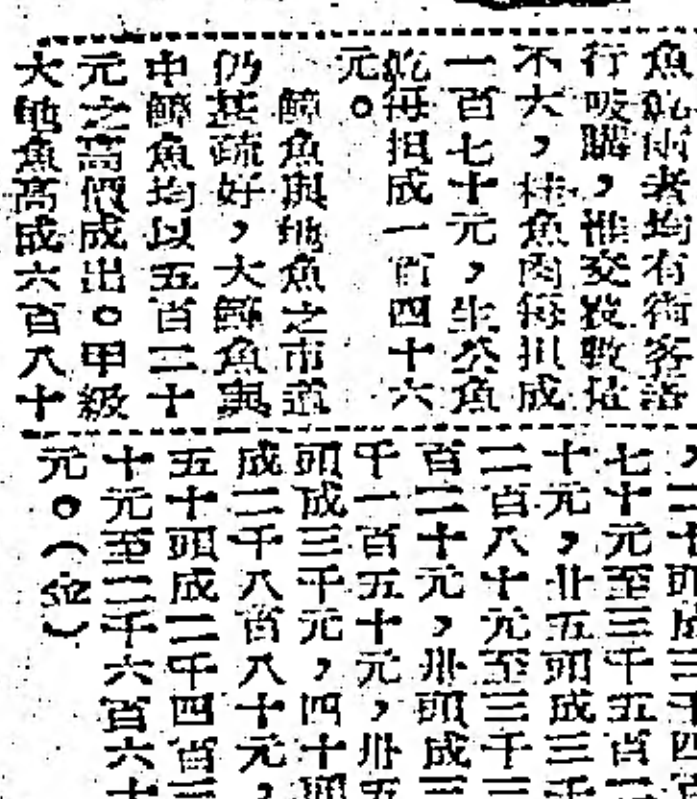 魚乾兩者均有街客諮
行吸購，惟交投數量
不大，桂魚肉每担成
一百七十元，生公魚
乾每担成一百四十六
元。
鱆魚與地魚之市道
仍甚疏好，大鱆魚與
中鱆魚均以五百二十
元之高價成出。甲級
大地魚高成六百八十
，二十頭成三千四
七十元至三千五百二
十元，廿五頭成三千
二百八十元至三千三
百二十元，卅頭成三
千一百五十元，卅五
頭成三千元，四十頭
成二千八百八十元，
五十頭成二千四百三
十元至二千六百六十
元。（　）